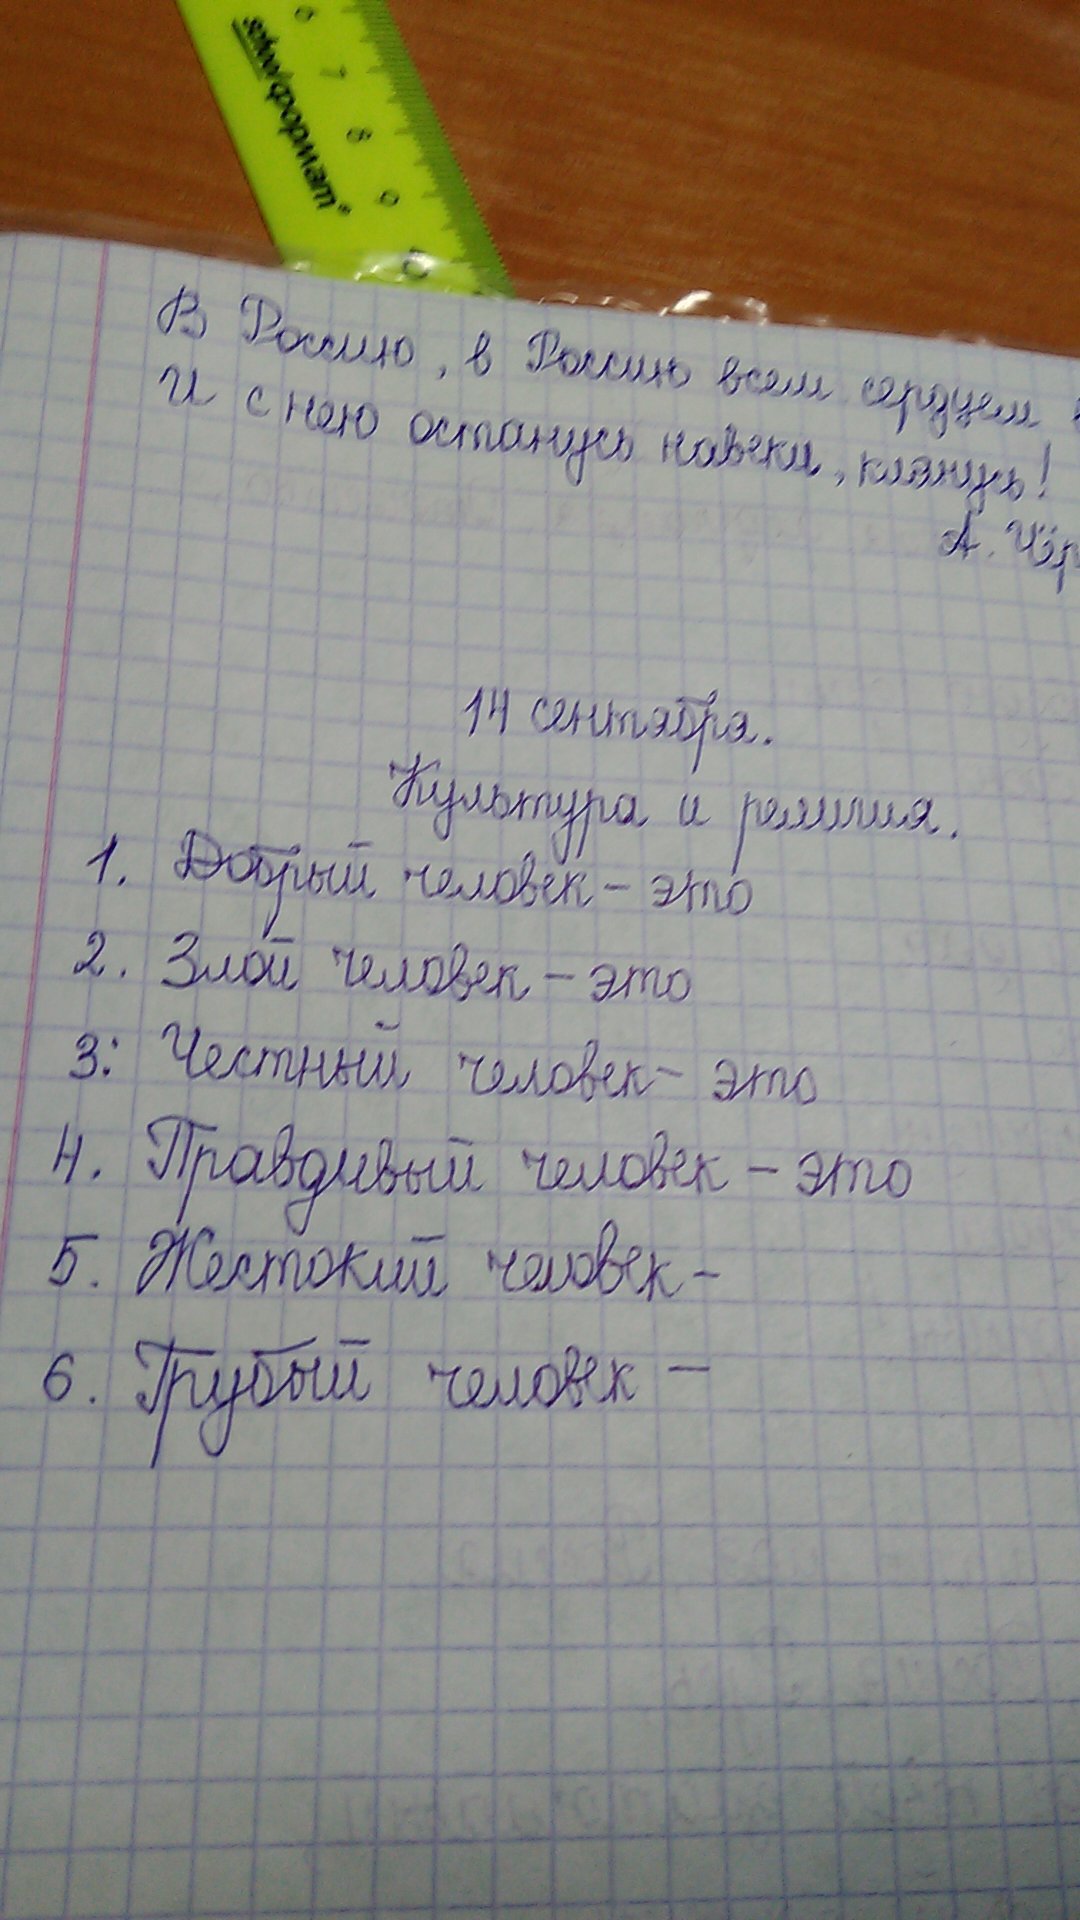 6
7
8
9
10
school формат®
В Россию, в Россию всем сердцем
И с нею останусь навеки, клянусь!
А. Чёр
14 сентября.
Культура и религия.
1. Добрый человек - это
2. Злой человек - это
3. Честный человек - это
4. Правдивый человек - это
5. Жестокий человек -
6. Грубый человек -